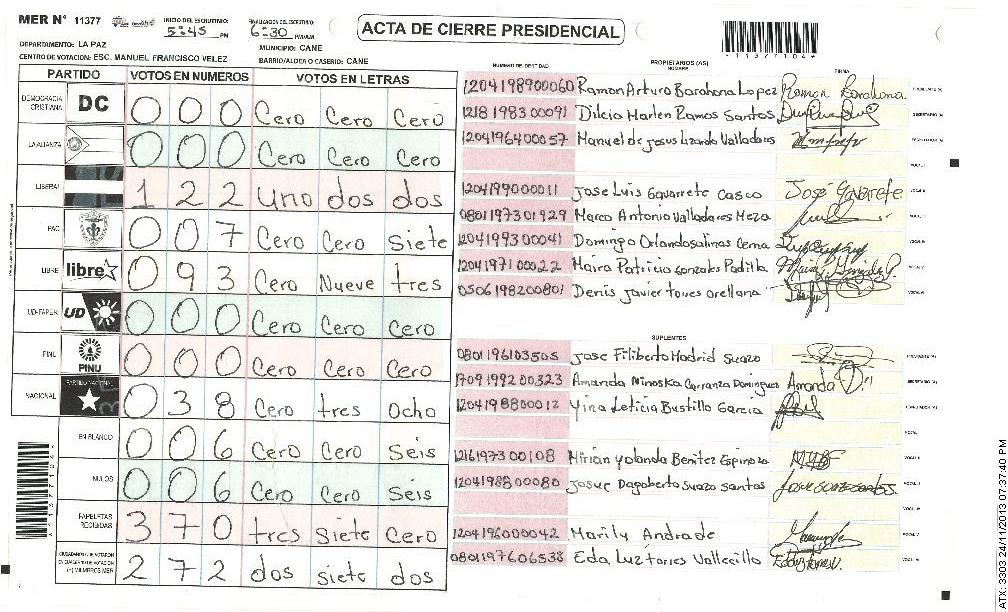 MER Nº 11377
INICIO DEL ESCRUTINIO: 5:45 PM
FINALIZACION DEL ESCRUTINIO: 6:30 PM/AM
ACTA DE CIERRE PRESIDENCIAL
*11377104*
DEPARTAMENTO: LA PAZ
MUNICIPIO: CANE
CENTRO DE VOTACION: ESC. MANUEL FRANCISCO VELEZ
BARRIO/ALDEA O CASERIO: CANE
PARTIDO VOTOS EN NUMEROS VOTOS EN LETRAS
DEMOCRACIA CRISTIANA DC 0 0 0 Cero Cero Cero
LA ALIANZA 0 0 0 Cero Cero Cero
LIBERAL 1 2 2 Uno dos dos
PAC 0 0 7 Cero Cero Siete
LIBRE libre 0 9 3 Cero Nueve tres
UD-FAPER UD 0 0 0 Cero Cero Cero
PINU PINU 0 0 0 Cero Cero Cero
NACIONAL PARTIDO NACIONAL 0 3 8 Cero tres Ocho
EN BLANCO 0 0 6 Cero Cero Seis
NULOS 0 0 6 Cero Cero Seis
PAPELETAS RECIBIDAS 3 7 0 tres Siete Cero
2 7 2 dos siete dos
NUMERO DE IDENTIDAD PROPIETARIOS (AS) NOMBRE FIRMA
1204198900060 Ramon Arturo Barahona Lopez Ramon Barahona
1218198300091 Dilcia Marlen Ramos Santos
1204196400057 Manuel de Jesus Lizardo Valladares
1204199000011 Jose Luis Gavarrete Casco José Gavarrete
0801197301929 Marco Antonio Valladares Meza
1204199300041 Domingo Orlando Salinas Cerna
1204197100022 Maira Patricia Gonzales Padilla
0506198200801 Denis Javier torres Orellana
SUPLENTES
0801196103505 Jose Filiberto Madrid Suazo
1709199200323 Amanda Minoska Carranza Domingues Amanda
1204198800012 Yina Leticia Bustillo Garcia
1216197300108 Mirian Yolanda Benitez Espinoza
1204198800080 Josue Dagoberto Suazo Santos
1204196000042 Marily Andrade
0801197606538 Eda Luz torres Vallecillo
ATX: 3303 24/11/2013 07:37:40 PM